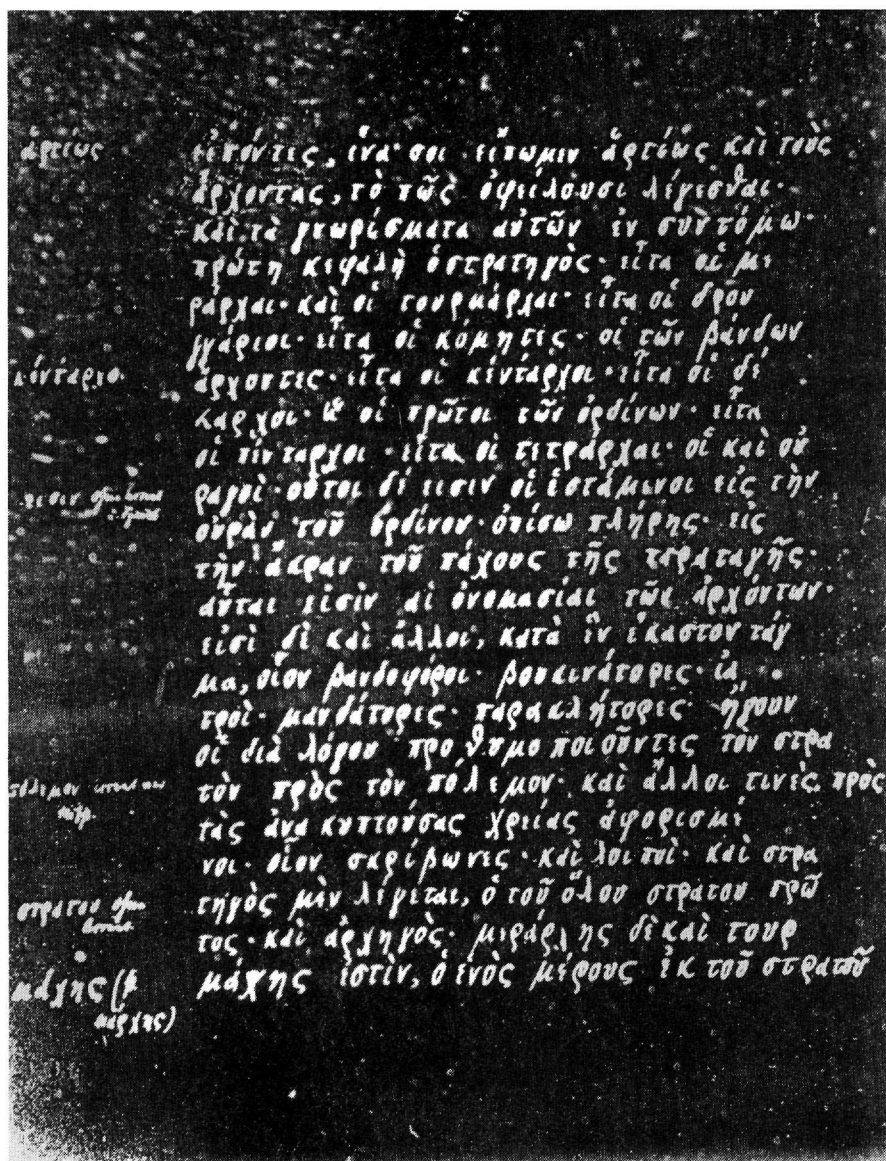 ἀρτίως
εἰπόντες, ἵνα σοι εἴπωμεν ἀρτίως καὶ τοὺς
ἄρχοντας, τὸ πῶς ὀφείλουσι λέγεσθαι·
καὶ τὰ γνωρίσματα αὐτῶν ἐν συντόμω·
πρώτη κεφαλὴ ὁ στρατηγὸς· εἶτα οἱ με
ράρχαι· καὶ οἱ τουρμάρχαι· εἶτα οἱ δρουν
γγάριοι· εἶτα οἱ κόμητες· οἱ τῶν βάνδων
κένταρχοι
ἄρχοντες· εἶτα οἱ κένταρχοι· εἶτα οἱ δέ
καρχοι· οἱ πρῶτοι τῶν ὀρδίνων· εἶτα
οἱ πένταρχοι· εἶτα οἱ τετράρχαι· οἳ καὶ οὐ
ραγοὶ· οὗτοι δέ εισιν οἱ ἱστάμενοι εἰς τὴν
οὐρὰν τοῦ ὀρδίνου· ὀπίσω πλήρης· εἰς
τὴν ἄκραν τοῦ πάχους τῆς παραταγῆς·
αὗται εἰσὶν αἱ ὀνομασίαι τῶν ἀρχόντων·
εἰσὶ δὲ καὶ ἄλλοι, κατὰ ἓν ἕκαστον τάγ
μα, οἷον βανδοφόροι· βουκινάτορες· ἰα
τροὶ· μανδάτορες· παρακλήτορες· ἤγουν
οἱ διὰ λόγου προθυμοποιοῦντες τὸν στρα
πόλεμον
τὸν πρὸς τὸν πόλεμον· καὶ ἄλλοι τινὲς πρὸς
τὰς ἀνακυπτούσας χρείας ἀφορισμέ
νοι· οἷον σκρίβωνες· καὶ λοιποὶ· καὶ στρα
στρατου
τηγὸς μὲν λέγεται, ὁ τοῦ ὅλου στρατου πρῶ
τος· καὶ ἀρχηγὸς· μεράρχης δὲ καὶ τουρ
μάχης (μ
μάρχης)
μάχης ἐστὶν, ὁ ἑνὸς μέρους ἐκ τοῦ στρατοῦ